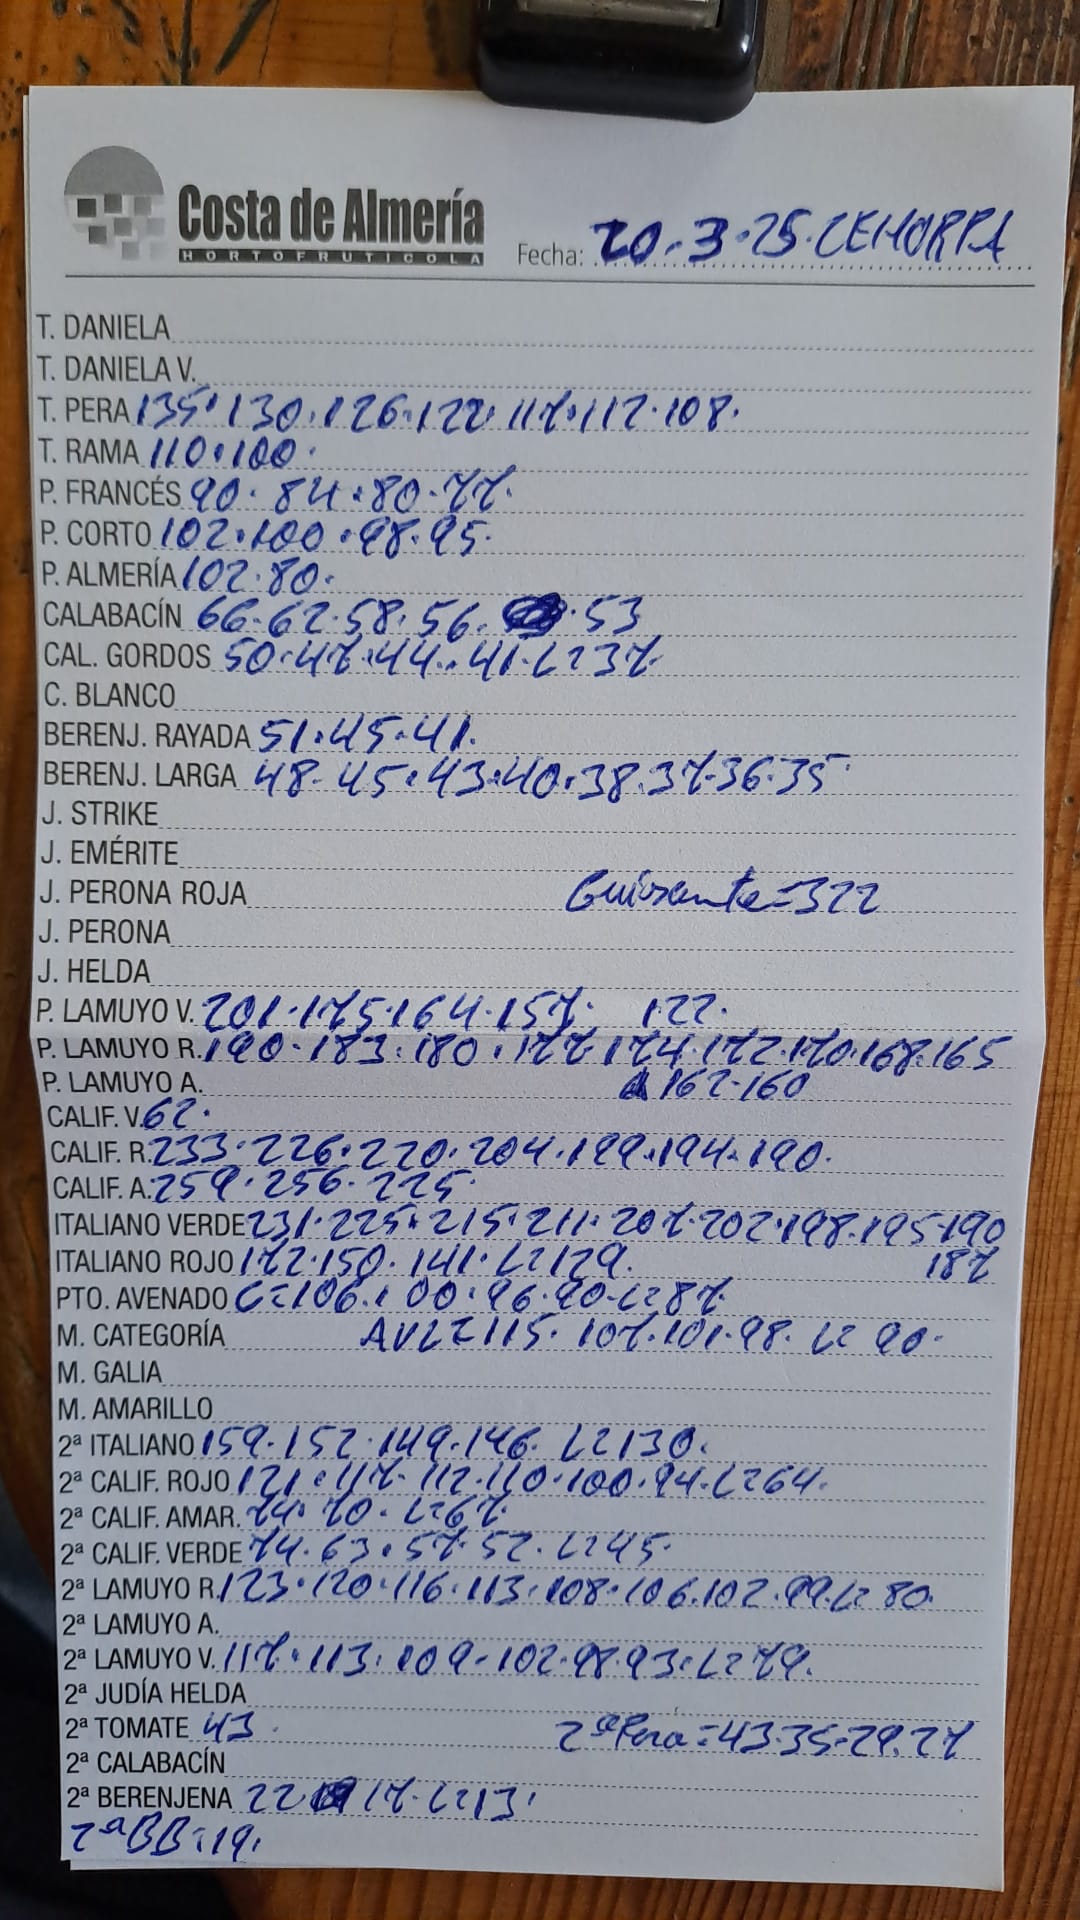 Costa de Almería
HORTOFRUTICOLA
Fecha: 20.3.25.CEHORPA
T. DANIELA
T. DANIELA V.
T. PERA 135.130.126.122.117.112.108.
T. RAMA 110.100.
P. FRANCÉS 90.84.80.77.
P. CORTO 102.100.98.95.
P. ALMERÍA 102.80.
CALABACÍN 66.62.58.56. .53
CAL. GORDOS 50.47.44..41.L=37.
C. BLANCO
BERENJ. RAYADA 51.45.41.
BERENJ. LARGA 48.45.43.40.38.37.36.35.
J. STRIKE
J. EMÉRITE
J. PERONA ROJA Guisante=322
J. PERONA
J. HELDA
P. LAMUYO V. 201.175.164.157. 122.
P. LAMUYO R. 190.183.180.177.174.172.170.168.165
P. LAMUYO A. 162.160
CALIF. V. 62.
CALIF. R. 233.226.220.204.199.194.190.
CALIF. A. 259.256.225.
ITALIANO VERDE 231.225.215.211.207.202.198.195.190
ITALIANO ROJO 172.150.141.L=129. 187
PTO. AVENADO C=106.100.96.90.L=87.
M. CATEGORÍA AVL=115.107.101.98.L=90.
M. GALIA
M. AMARILLO
2ª ITALIANO 159.152.149.146.L=130.
2ª CALIF. ROJO 121.117.112.110.100.94.L=64.
2ª CALIF. AMAR. 74.70.L=67.
2ª CALIF. VERDE 74.63.57.52.L=45.
2ª LAMUYO R. 123.120.116.113.108.106.102.99.L=80.
2ª LAMUYO A.
2ª LAMUYO V. 117.113.109.102.98.93.L=79.
2ª JUDÍA HELDA
2ª TOMATE 43. 2ªPera=43.35.29.27
2ª CALABACÍN
2ª BERENJENA 22 17.L=13.
2ªBB=19.